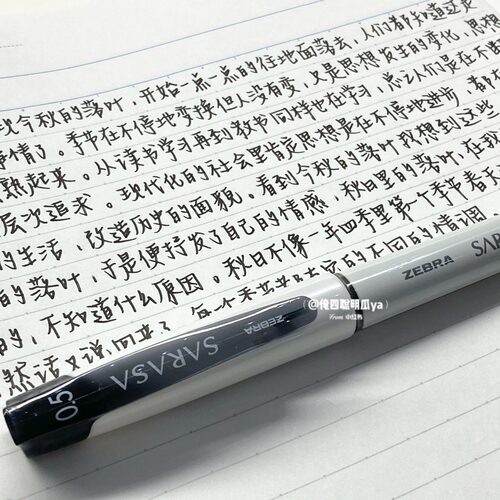 次今秋的落叶，开始一点一点的往地面落去，人们都知道这是
事情了。季节在不停地变换但人没有变，又是思想发生的变化，思想
熟起来。从读书学习再到教书同样也在学习，总之人们是在不
层次追求。现代化的社会里肯定思想是在不停地进步，都在
的生活，改造历史的面貌。看到今秋的落叶我想到这些
的落叶，于是便抒发了自己的情感，秋日里的落叶在我
的，不知道什么原因。秋日不像一年四季里第一个季节春天
然话又说回来了，每一个季节
的不同的情调
ZEBRA
SAR
@俺四聪明瓜ya
From
ZEBRA
SARASA
0.5